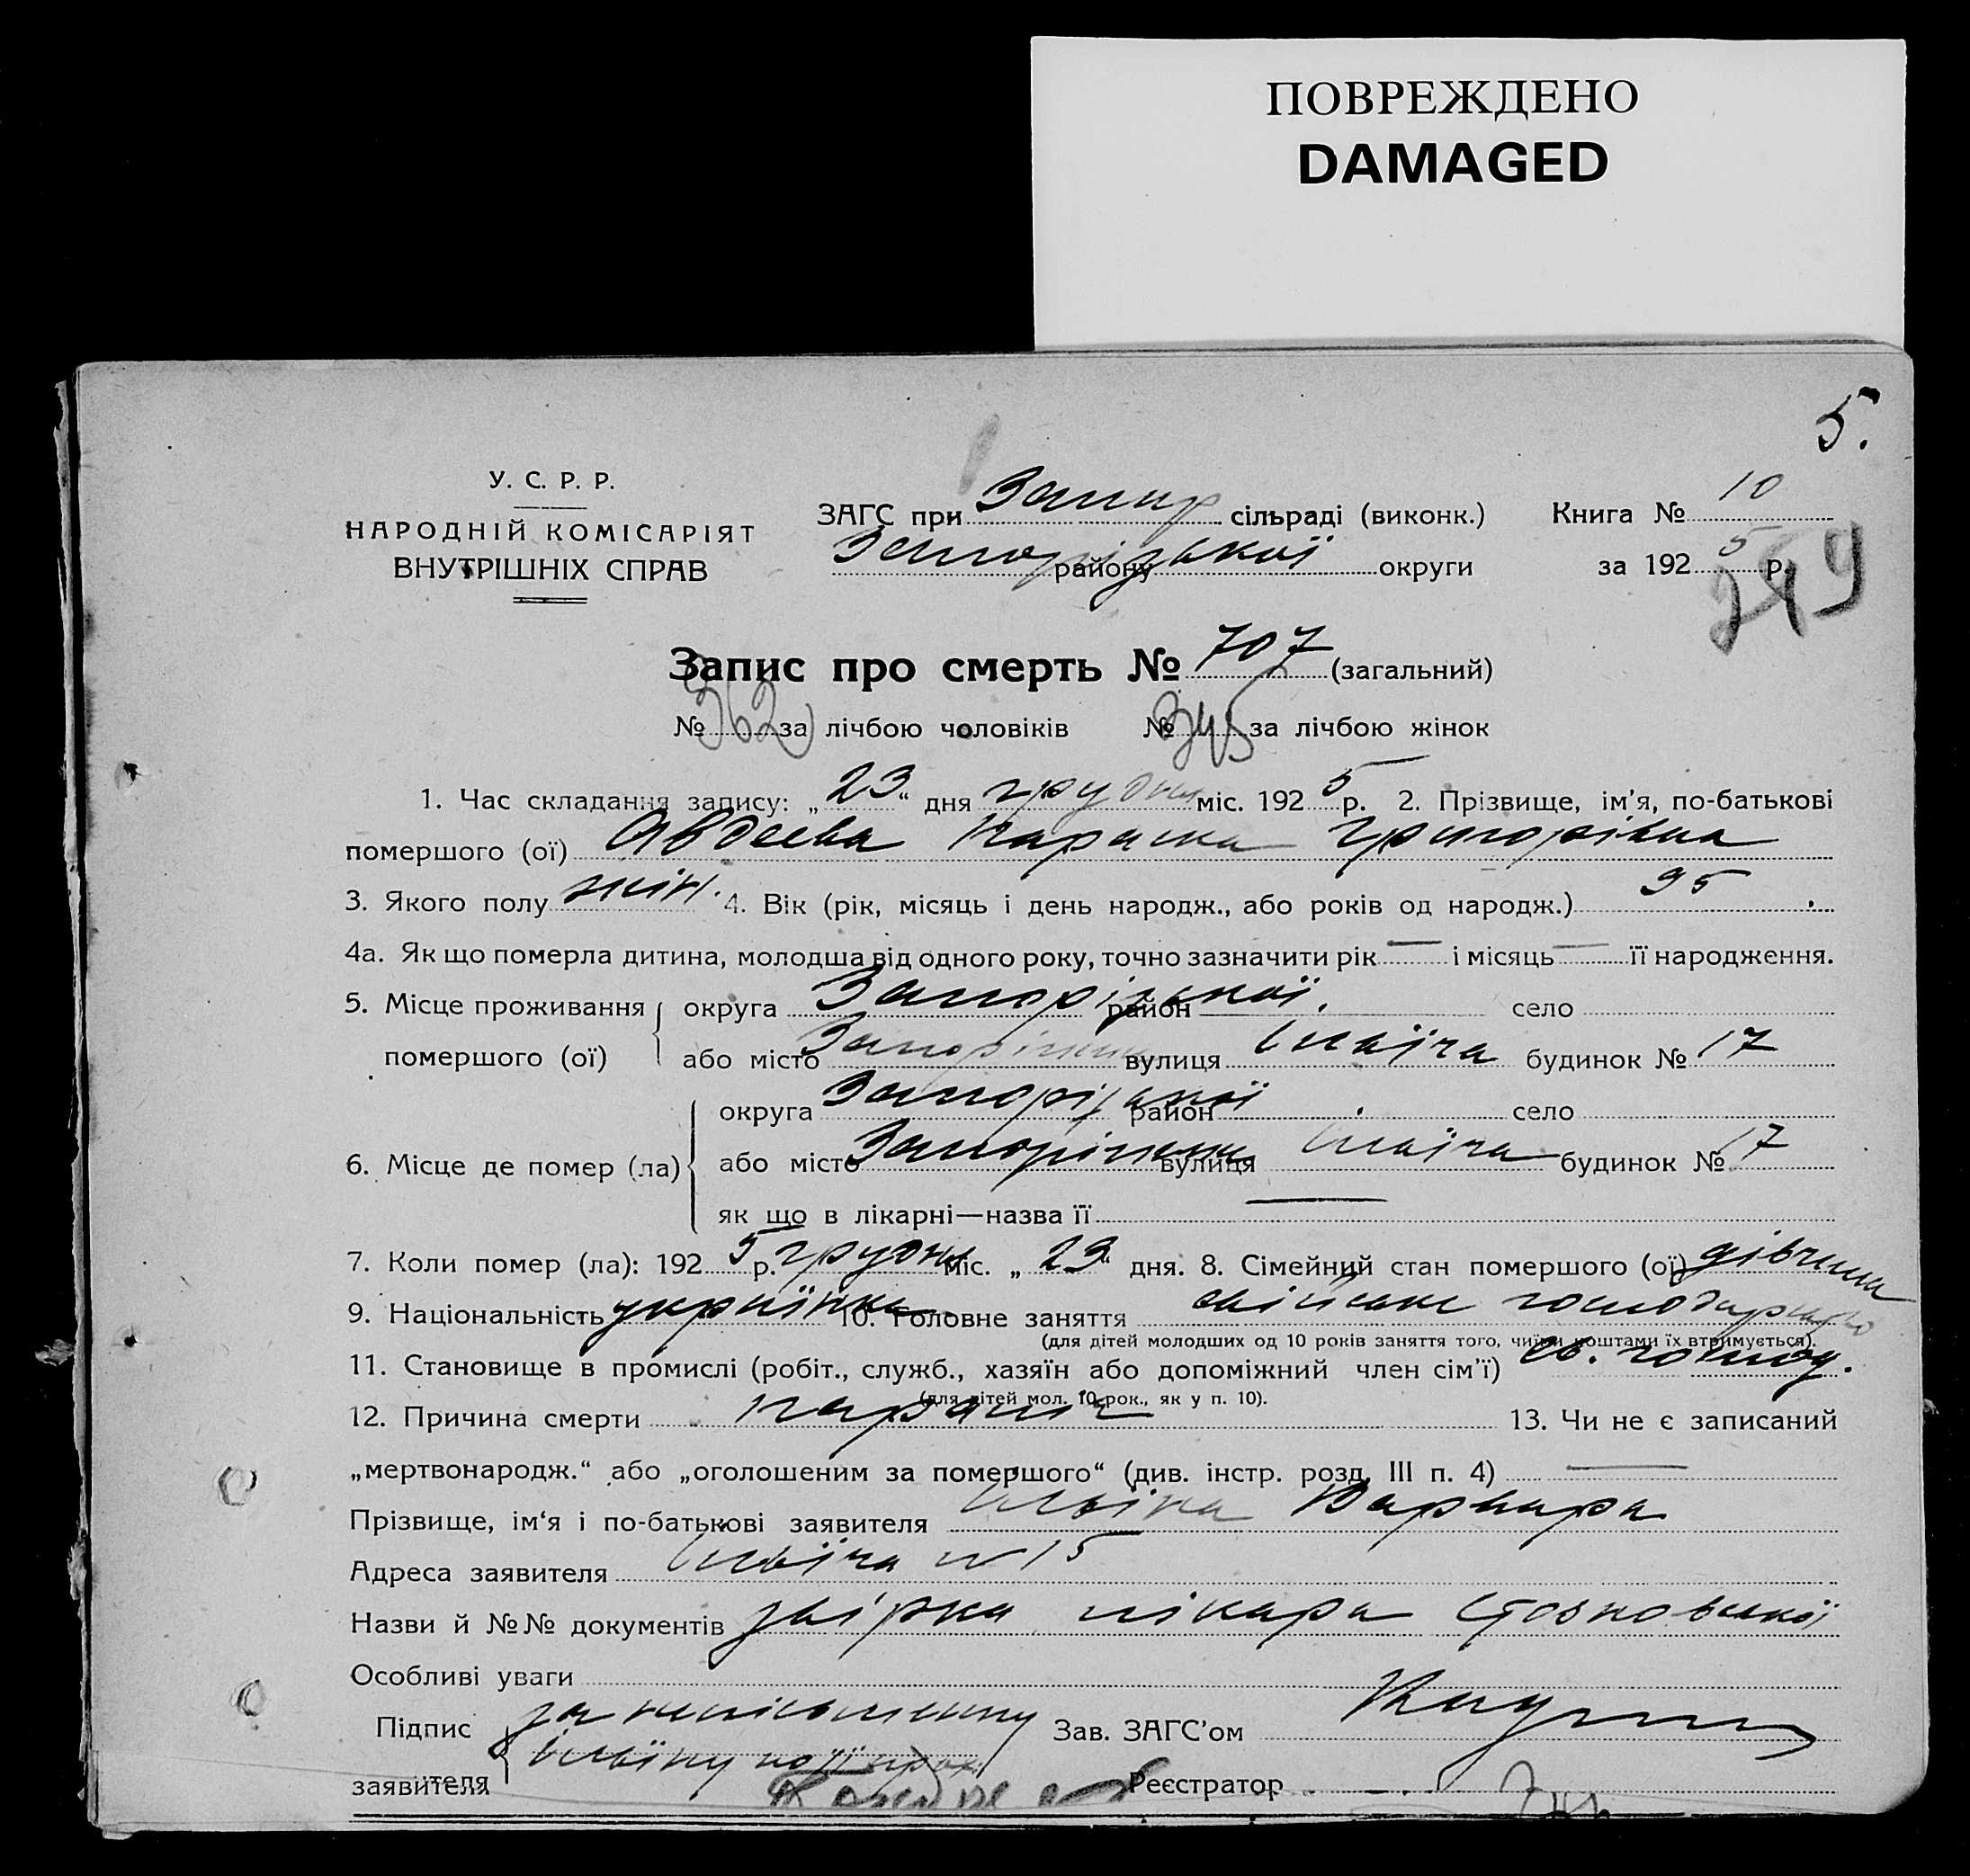 ПОВРЕЖДЕНО
DAMAGED
5.
У. С. Р. Р.
НАРОДНІЙ КОМІСАРІЯТ
ВНУТРІШНІХ СПРАВ
ЗАГС при Запор сільраді (виконк.) Книга № 10
Запорізької району округи за 192 5 р.
249
Запис про смерть № 707 (загальний)
№ 362 за лічбою чоловіків № 345 за лічбою жінок
1. Час складання запису: „23“ дня грудня міс. 192 5 р. 2. Прізвище, ім'я, по-батькові
помершого (ої) Авдеева Параска Григорівна
3. Якого полу жін. 4. Вік (рік, місяць і день народж., або років од народж.) 95
4а. Як що померла дитина, молодша від одного року, точно зазначити рік — і місяць — її народження.
5. Місце проживання помершого (ої) округа Запорізької район село
або місто Запоріжжя вулиця Ілліча будинок № 17
6. Місце де помер (ла) округа Запорізької район село
або місто Запоріжжя вулиця Ілліча будинок № 17
як що в лікарні—назва її —
7. Коли помер (ла): 192 5 р. грудня міс. „23“ дня. 8. Сімейний стан помершого (ої) дівчина
9. Національність українка 10. Головне заняття сільське господарство
(для дітей молодших од 10 років заняття того, чиїми коштами їх втримується).
11. Становище в промислі (робіт., служб., хазяїн або допоміжний член сім'ї) господ.
(для дітей мол. 10 рок., як у п. 10).
12. Причина смерти параліч 13. Чи не є записаний
„мертвонародж.“ або „оголошеним за помершого“ (див. інстр. розд. III п. 4) —
Прізвище, ім'я і по-батькові заявителя Ільїна Варвара
Адреса заявителя Ілліча № 15
Назви й №№ документів лікара
Особливі уваги
Підпис заявителя за неписьменну Зав. ЗАГС'ом
Ільїну Реєстратор